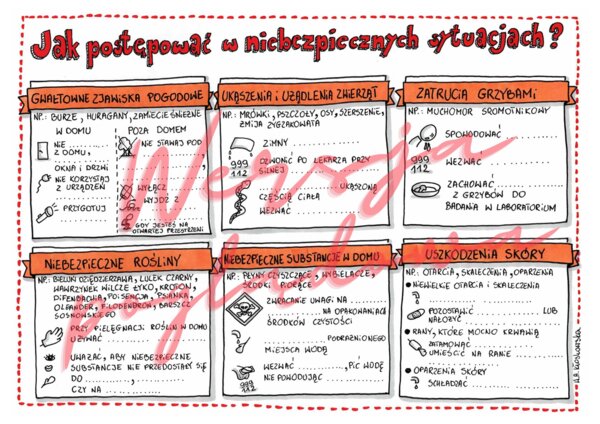 Jak postępować w niebezpiecznych sytuacjach?
GWAŁTOWNE ZJAWISKA POGODOWE
NP.: BURZE, HURAGANY, ZAMIECIE ŚNIEŻNE
W DOMU
NIE ............
Z DOMU, ............
OKNA I DRZWI
NIE KORZYSTAJ
Z URZĄDZEŃ
............
PRZYGOTUJ
............
POZA DOMEM
NIE STAWAJ POD
............
WYŁĄCZ ............
WYJDŹ Z ............
GDY JESTEŚ NA
OTWARTEJ PRZESTRZENI
UKĄSZENIA I UŻĄDLENIA ZWIERZĄT
NP.: MRÓWKI, PSZCZOŁY, OSY, SZERSZENIE,
ŻMIJA ZYGZAKOWATA
ZIMNY ............
999
112
DZWOŃ PO LEKARZA PRZY
SILNEJ ............
............ UKĄSZONĄ
CZĘŚCIĄ CIAŁA
WEZWAĆ ............
ZATRUCIA GRZYBAMI
NP.: MUCHOMOR SROMOTNIKOWY
SPOWODOWAĆ ............
999
112
WEZWAĆ ............
ZACHOWAĆ ............
Z GRZYBÓW DO
BADANIA W LABORATORIUM
NIEBEZPIECZNE ROŚLINY
NP.: BIELUŃ DZIĘDZIERZAWA, LULEK CZARNY,
WAWRZYNEK WILCZE ŁYKO, KROTON,
DIFENBACHIA, POISENCJA, PSIANKA,
OLEANDER, FILODENDRON, BARSZCZ
SOSNOWSKIEGO
PRZY PIELĘGNACJI ROŚLIN W DOMU
UŻYWAĆ ............
UWAŻAĆ, ABY NIEBEZPIECZNE
SUBSTANCJE NIE PRZEDOSTAŁY SIĘ
DO ............,
CZY NA ............
NIEBEZPIECZNE SUBSTANCJE W DOMU
NP.: PŁYNY CZYSZCZĄCE, WYBIELACZE,
ŚRODKI PIORĄCE
ZWRACANIE UWAGI NA ............
............ NA OPAKOWANIACH
ŚRODKÓW CZYSTOŚCI
............ PODRAŻNIONEGO
MIEJSCA WODĄ
WEZWAĆ ............, PIĆ WODĘ
NIE POWODUJĄC ............
999
112
USZKODZENIA SKÓRY
NP.: OTARCIA, SKALECZENIA, OPARZENIA
NIEWIELKIE OTARCIA I SKALECZENIA
............
POZOSTAWIĆ ............ LUB
NAŁOŻYĆ ............
RANY, KTÓRE MOCNO KRWAWIĄ
ZATAMOWAĆ ............
UMIEŚCIĆ NA RANIE ............
OPARZENIA SKÓRY
SCHŁADZAĆ ............
Wersja